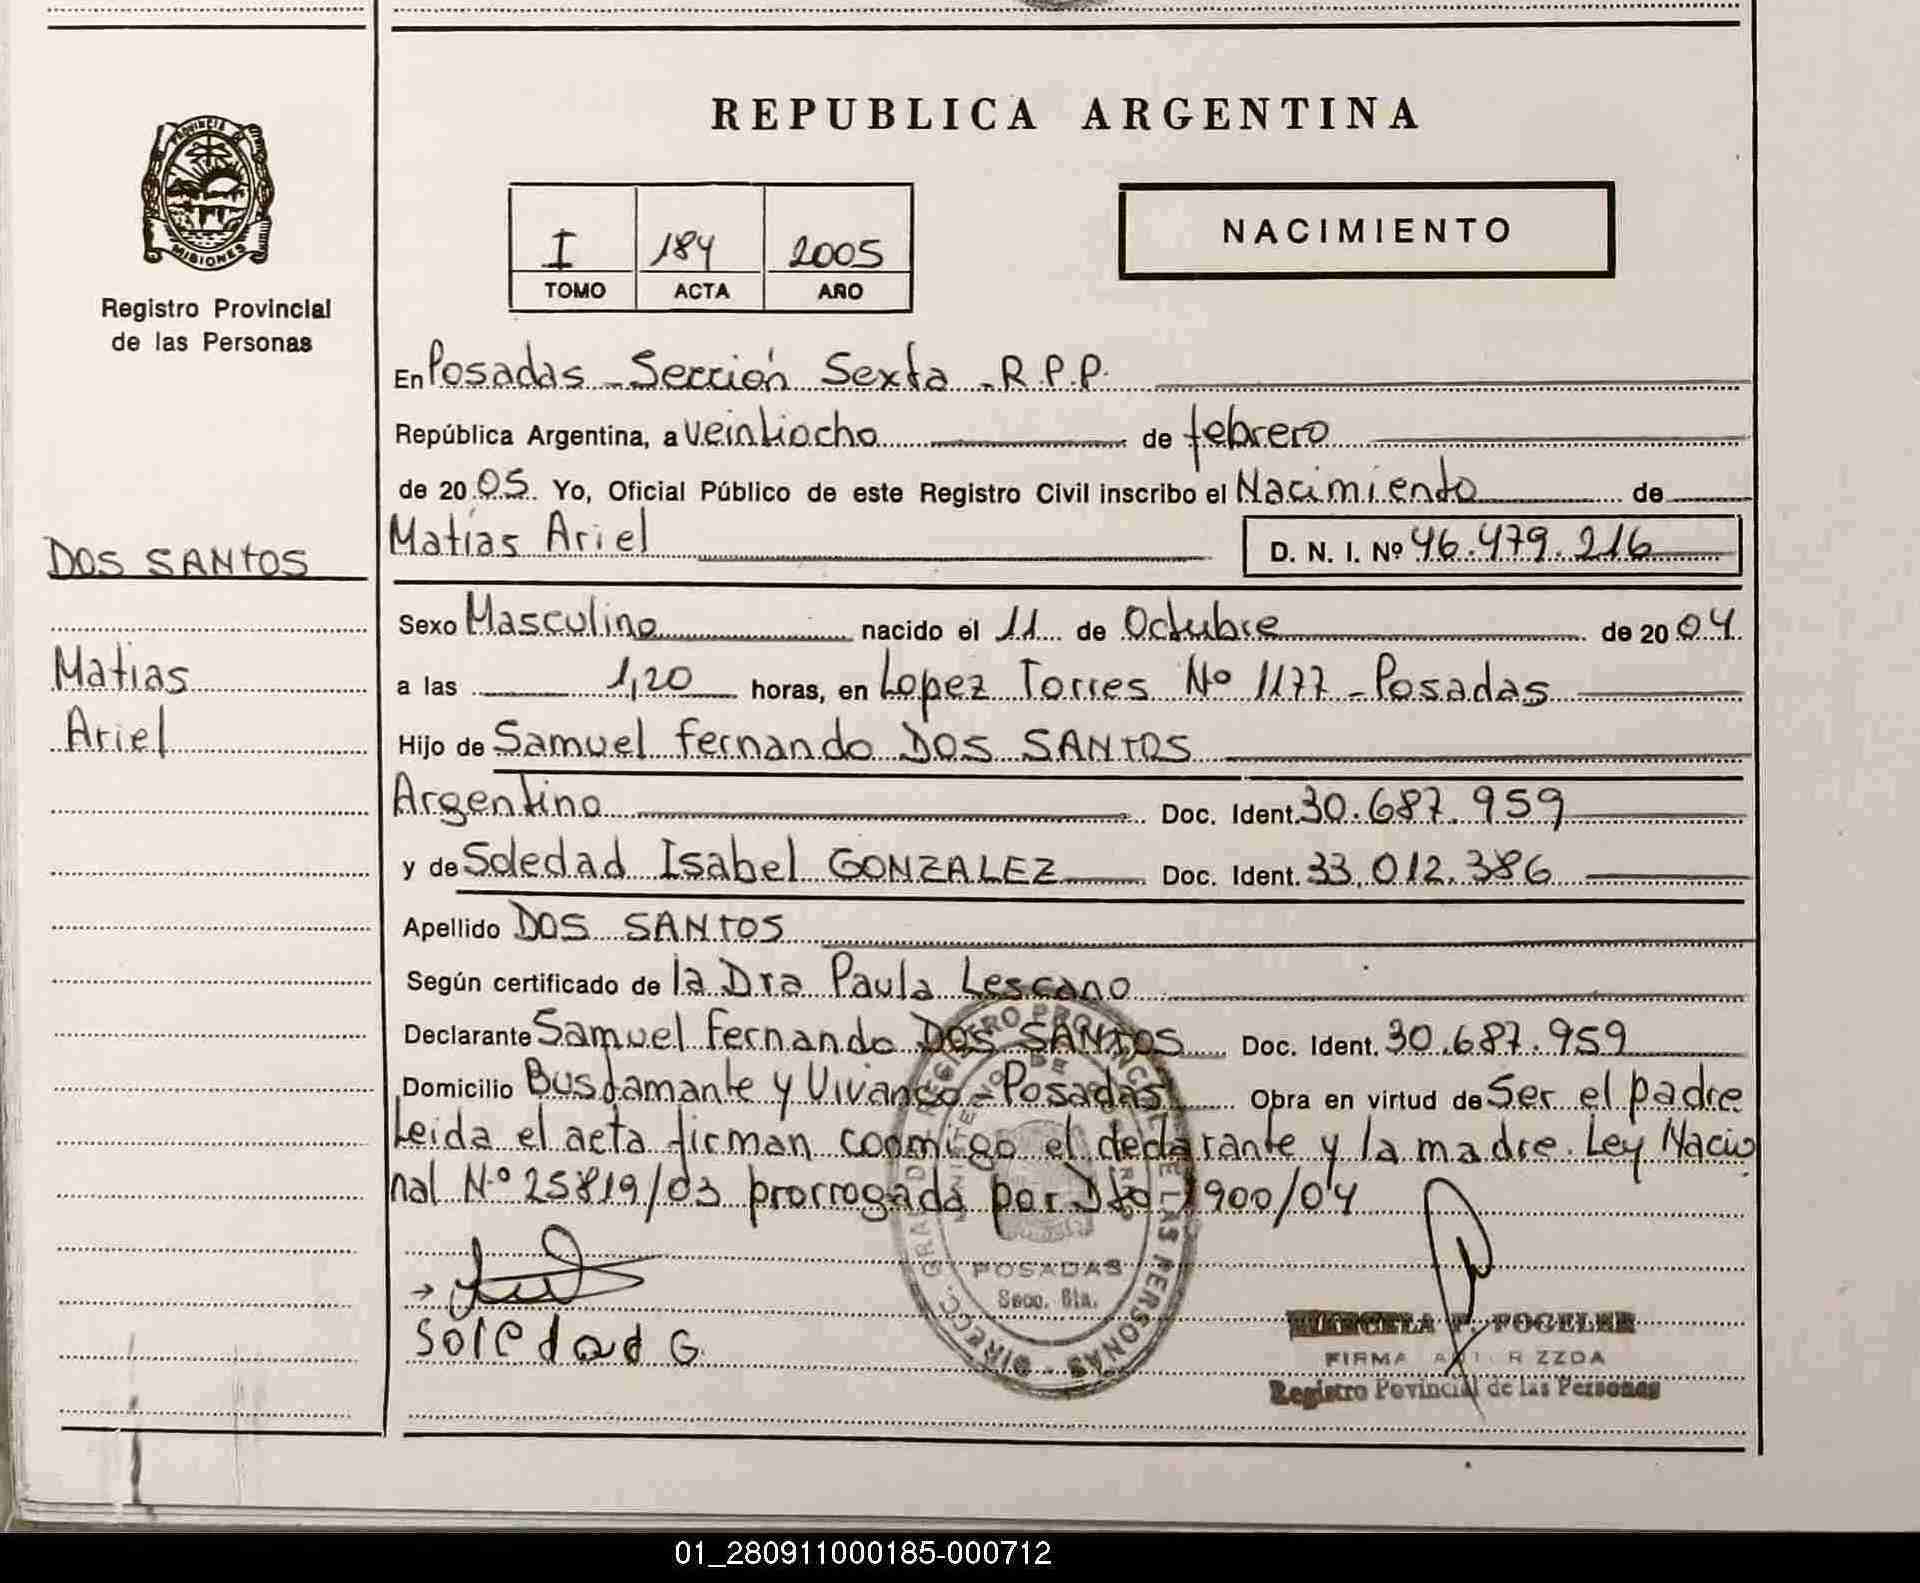 REPUBLICA ARGENTINA
PROVINCIA DE MISIONES
Registro Provincial
de las Personas
I 184 2005
TOMO ACTA AÑO
NACIMIENTO
En Posadas - Sección Sexta - R.P.P.
República Argentina, a veintiocho de febrero
de 2005. Yo, Oficial Público de este Registro Civil inscribo el Nacimiento de
DOS SANTOS
Matías Ariel D. N. I. Nº 46.479.216
Sexo Masculino nacido el 11 de Octubre de 2004
Matias
a las 1,20 horas, en Lopez Torres Nº 1177 - Posadas
Ariel
Hijo de Samuel Fernando DOS SANTOS
Argentino Doc. Ident. 30.687.959
y de Soledad Isabel GONZALEZ Doc. Ident. 33.012.386
Apellido DOS SANTOS
Según certificado de la Dra Paula Lescano
Declarante Samuel Fernando DOS SANTOS Doc. Ident. 30.687.959
Domicilio Bustamante y Vivanco - Posadas Obra en virtud de Ser el padre
Leida el acta firman conmigo el declarante y la madre. Ley Nacio
nal N.º 25819/03 prorrogada por Dto 1900/04
POSADAS
Secc. 6ta.
Soledad G.
MARCELA F. FOGELER
FIRMA AUTORIZZDA
Registro Povincial de las Personas
01_280911000185-000712